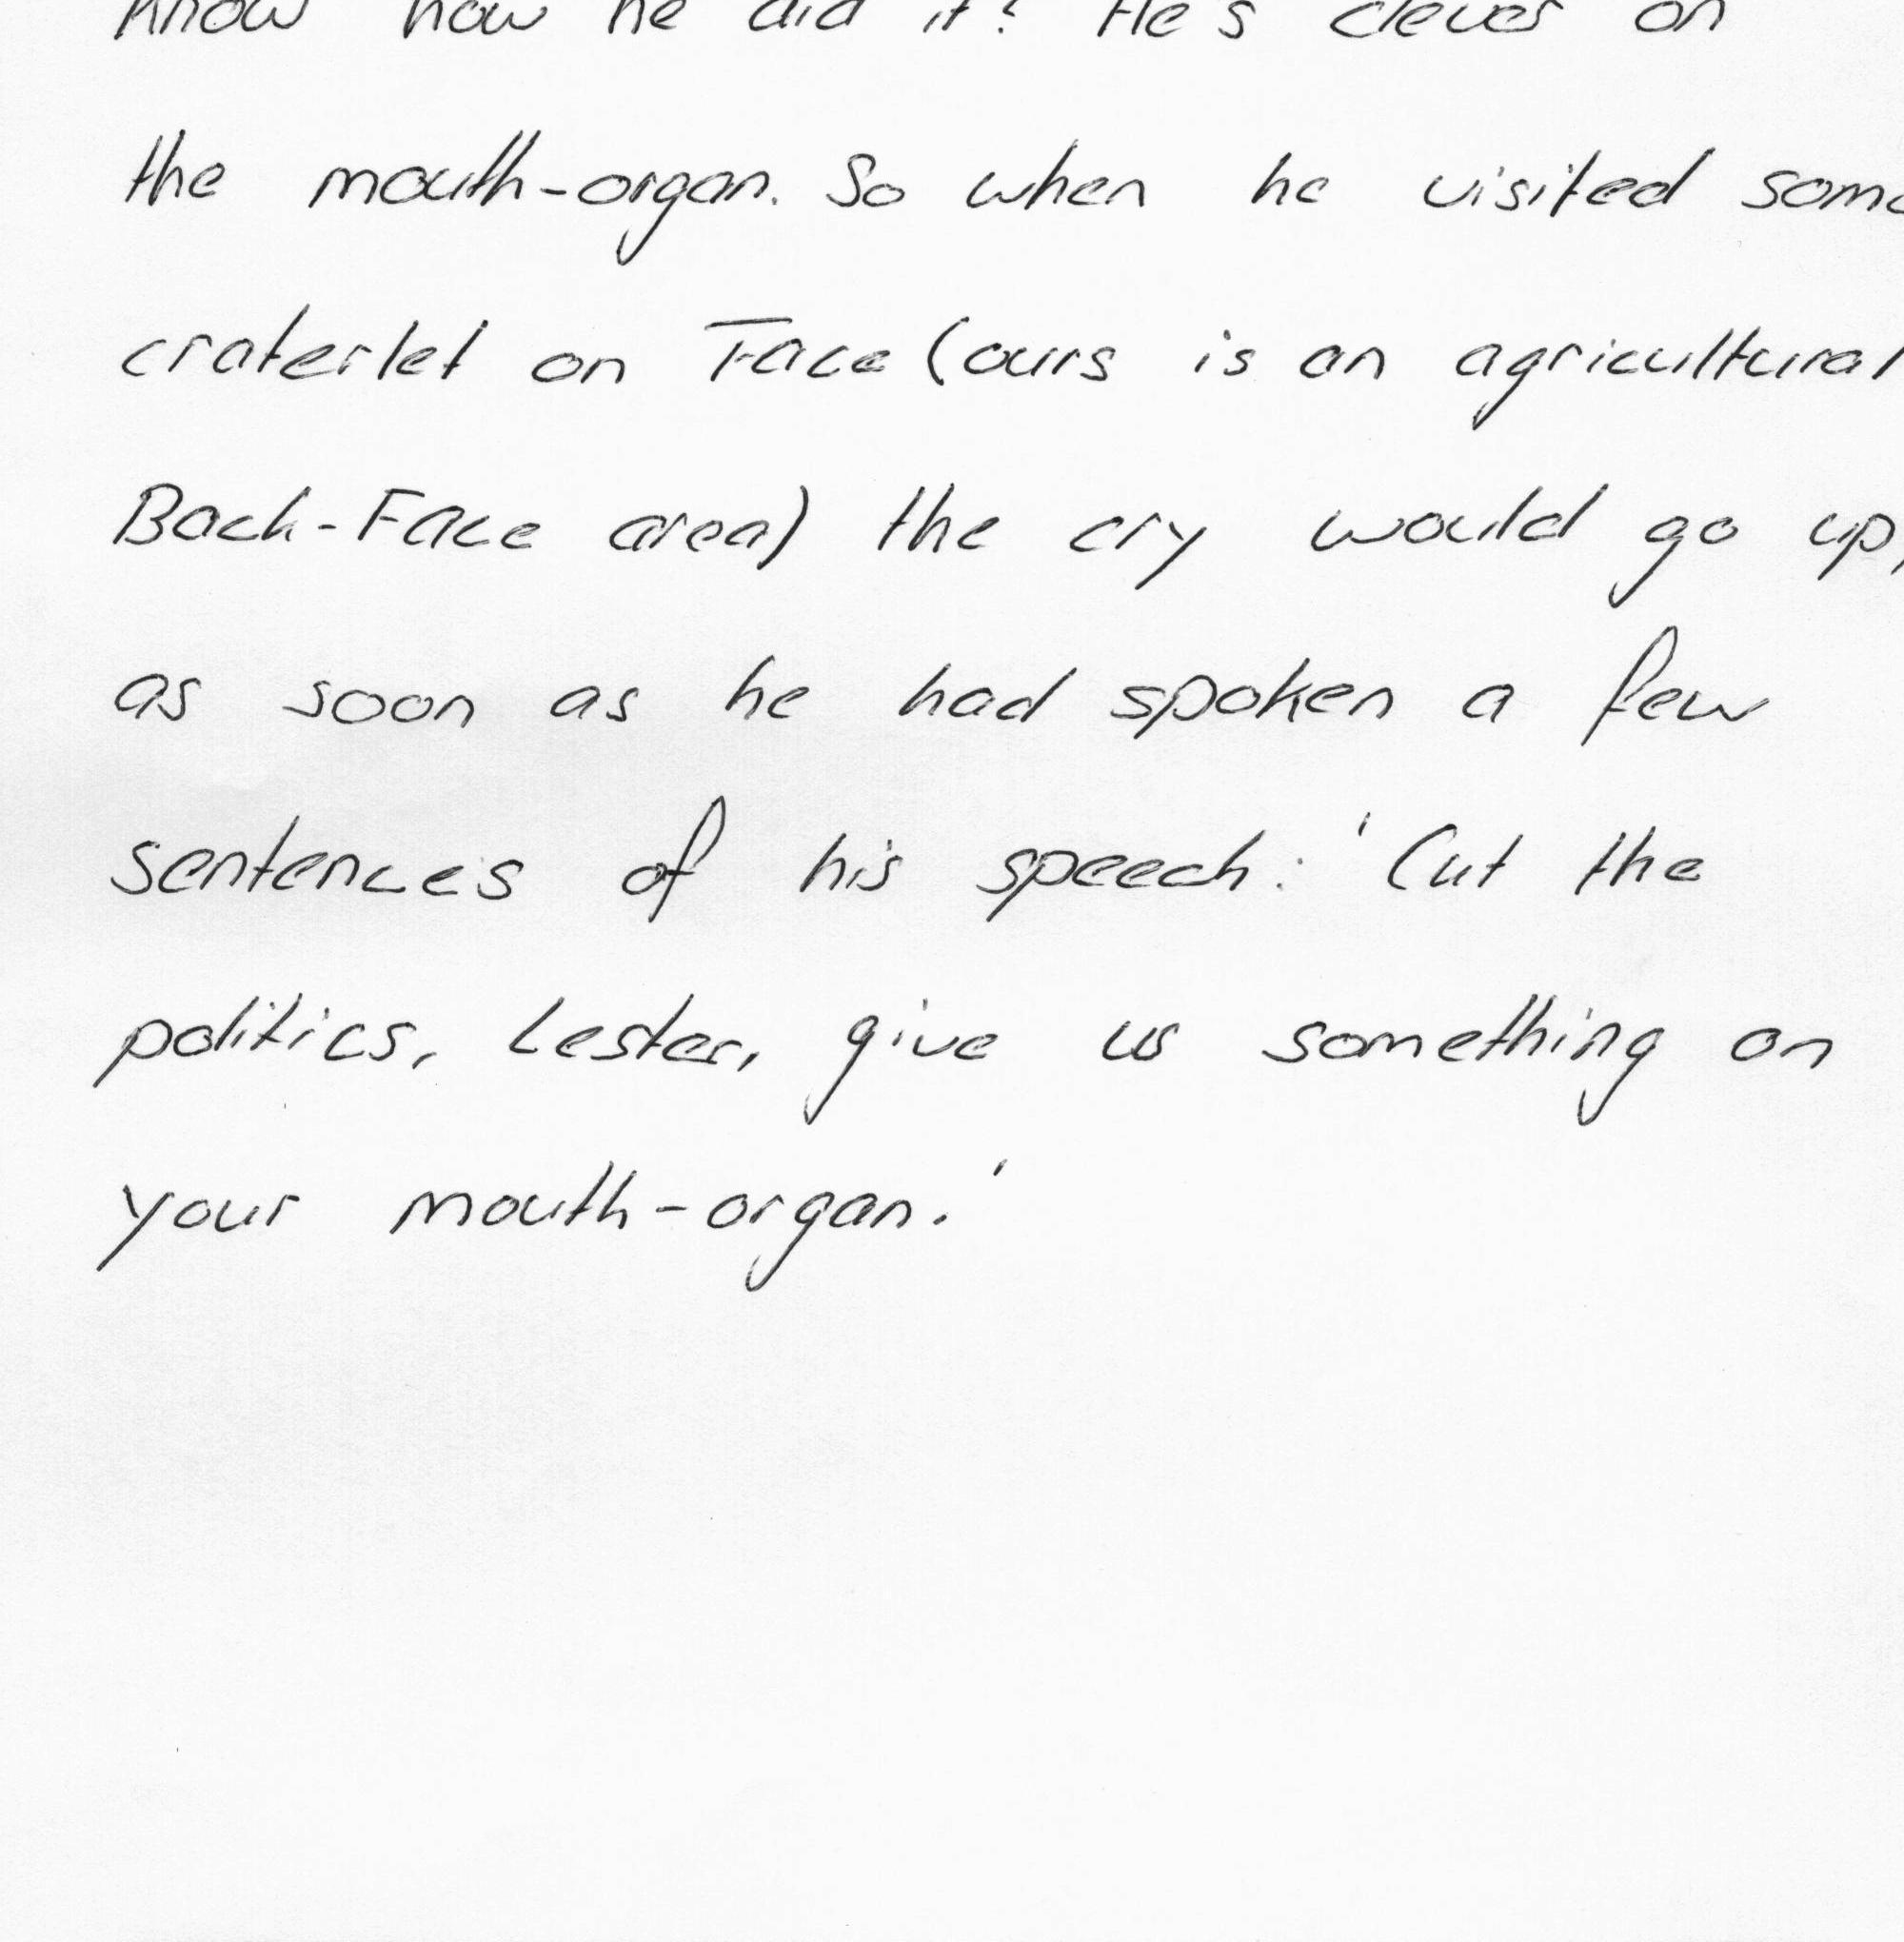 know how he did it? He's clever on
the mouth-organ. So when he visited some
craterlet on Face (ours is an agricultural
Back-Face area) the cry would go up,
as soon as he had spoken a few
sentences of his speech: 'Cut the
politics, Lester, give us something on
your mouth-organ.'